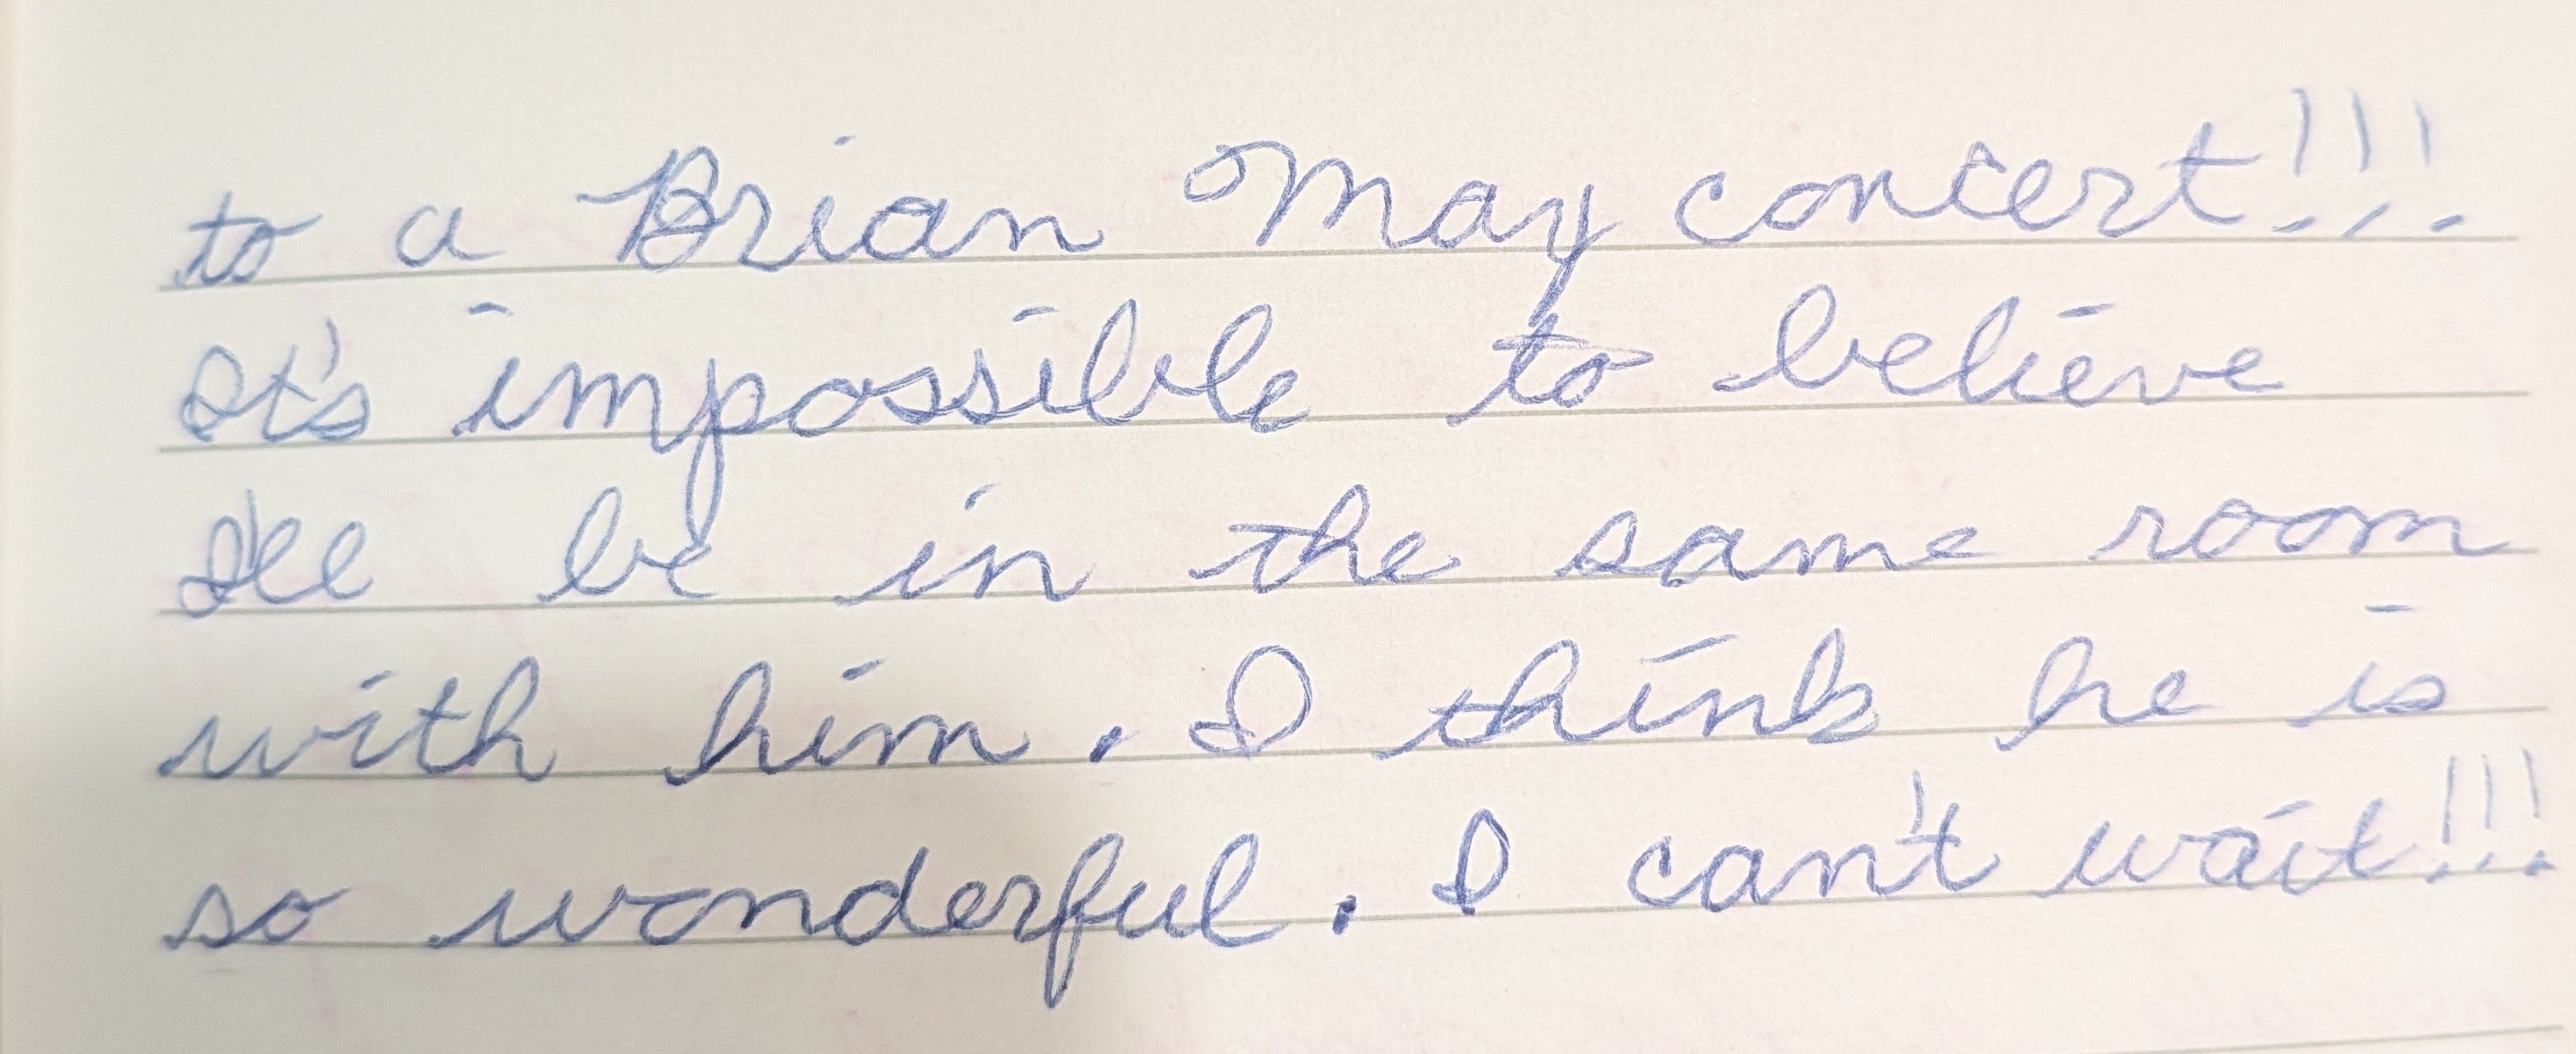 to a Brian May concert!!!
It's impossible to believe
I'll be in the same room
with him. I think he is
so wonderful. I can't wait!!!